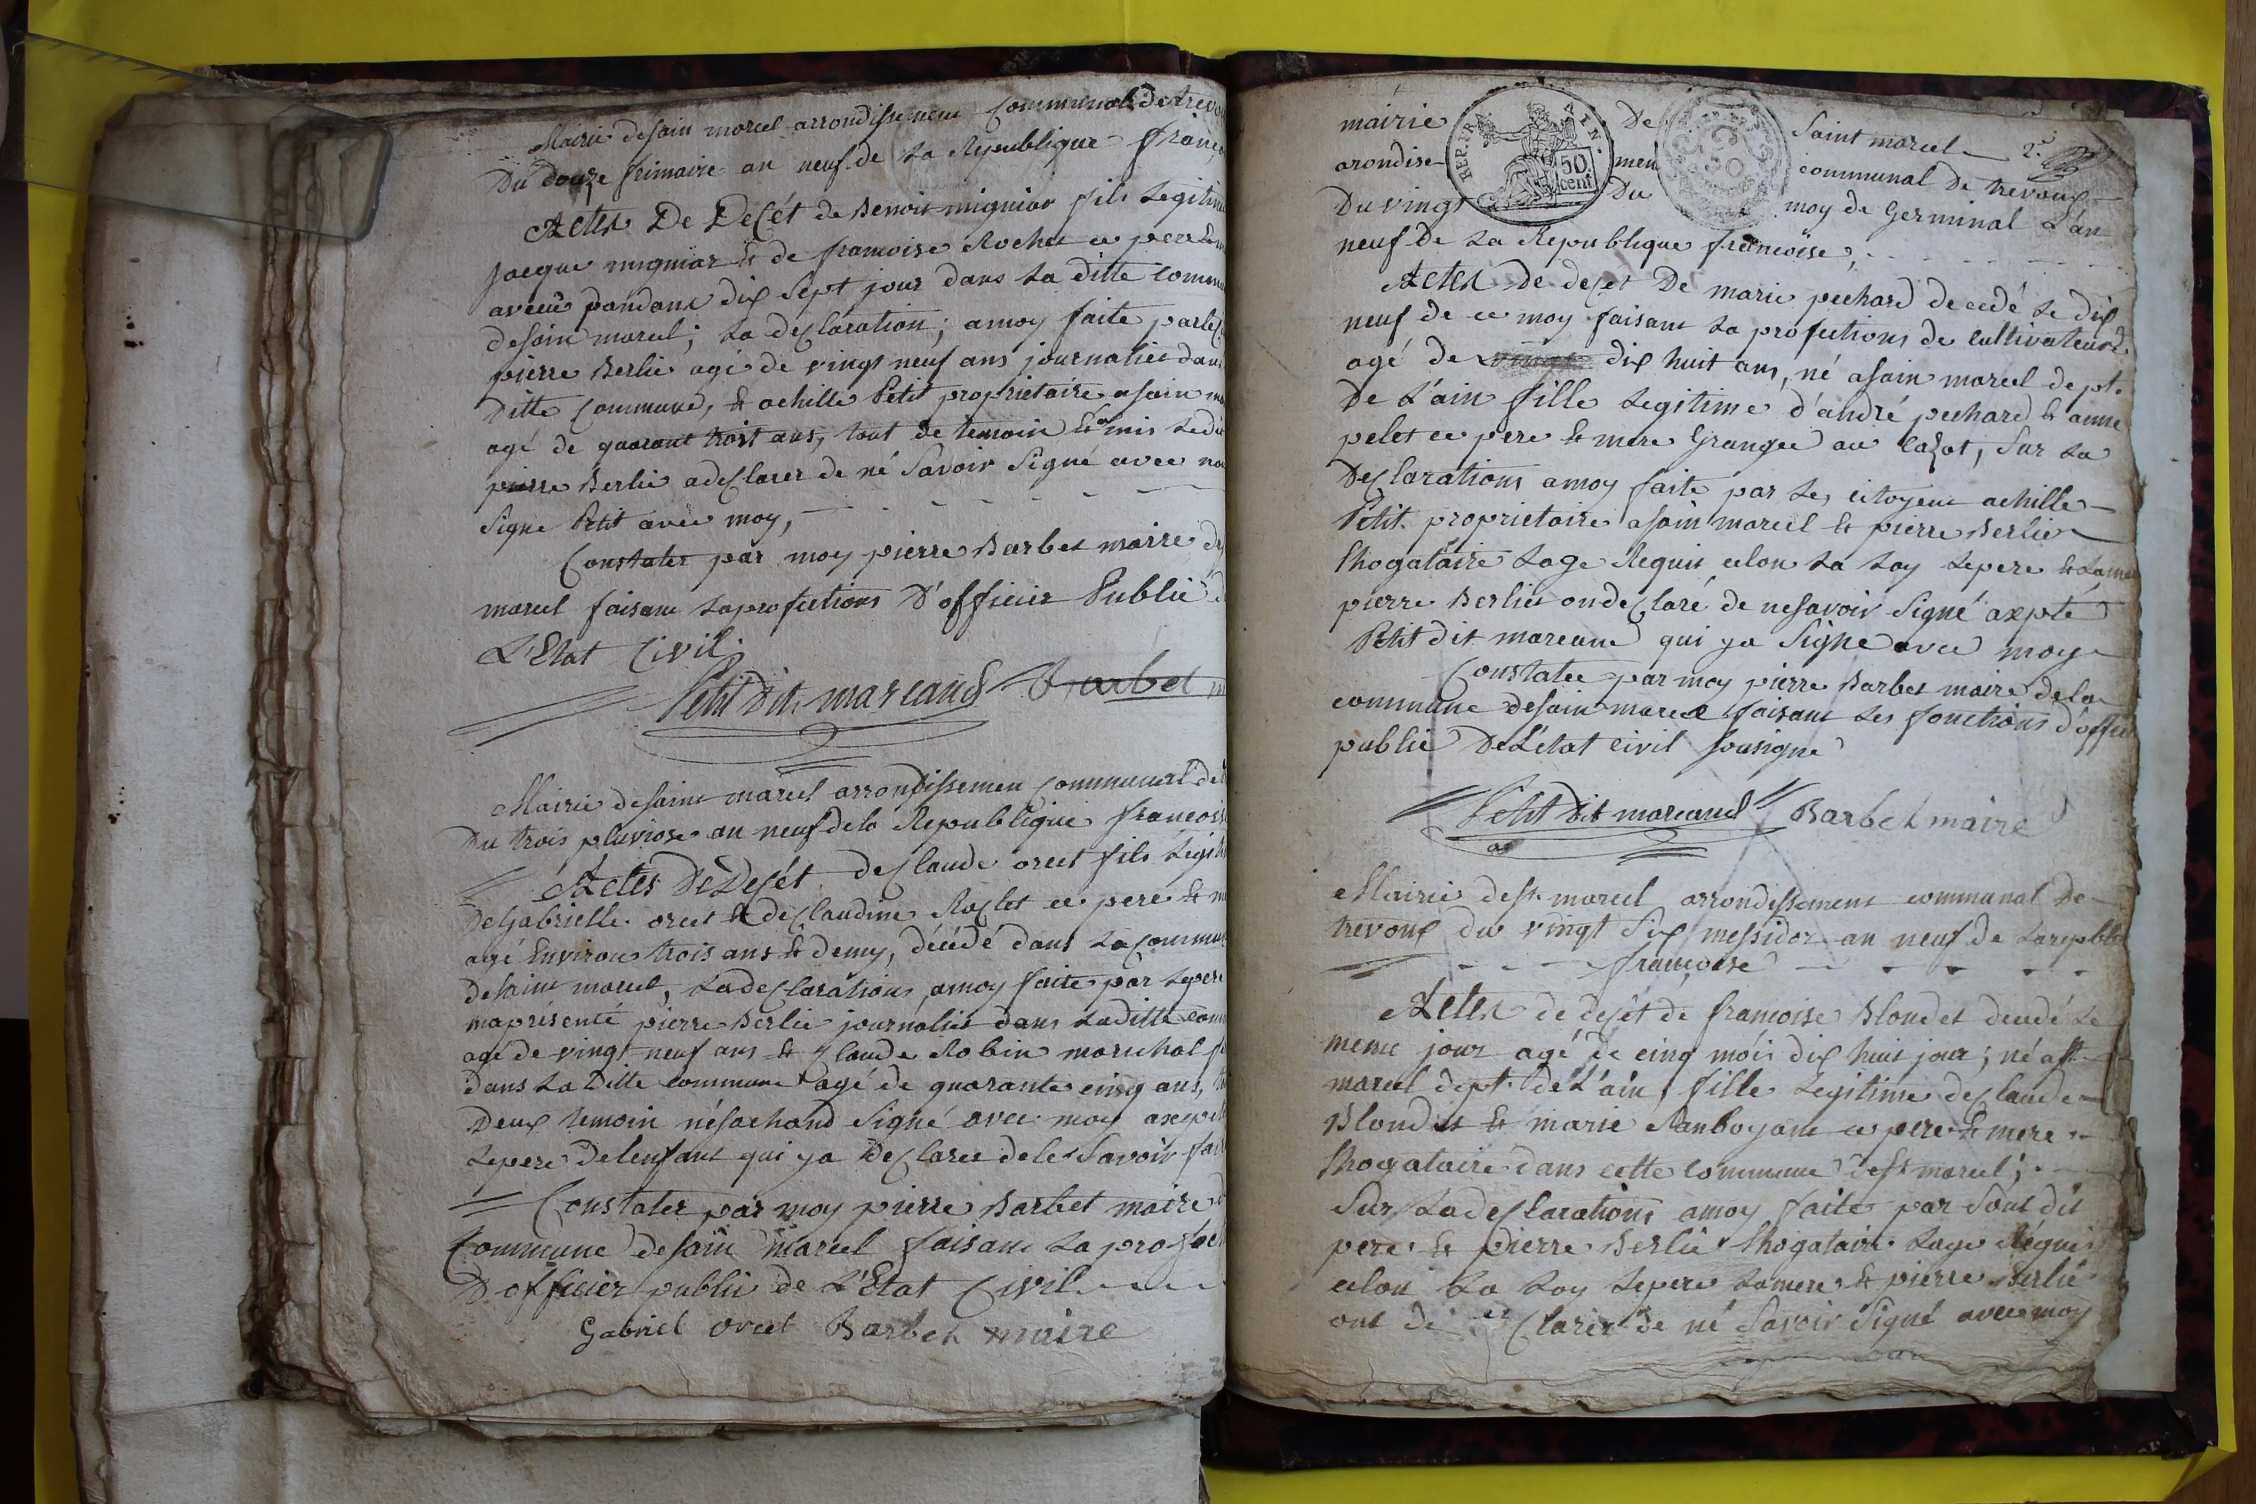 Mairie desain marcel arrondissement Communal de trevou
Du douze frimaire an neuf de La Republique françoi
Actes De Decét de Benoit migniar fils Legitime
jacque migniar & de francoise Rochet ce pere &
avecû pandant dix Sept jour dans La ditte commun
desain marcel; La declaration; amoy faite par Le C
pierre Berlie agé de vingt neuf ans journalier dans
Ditte commune, & achille Petit proprietaire asain ma
agé de quarant trois ans, tout de temoin & amis Ledi
pierre Berlie a declarer de né Savoir Signé avec no
Signe Petit avec moy,
Constater par moy pierre Barbet maire de
marcel faisant La profections D'officier Public d
L'Etat Civil.
Petit Dit marcand Barbet m
Mairie desaint marcel arrondissemen Communal de
Du trois pluviose an neuf de la Republique francois
Actes De Decét de Claude orcet fils Legit
De Gabrielle orcet & de Claudine Roclet ce pere & m
agé Environ trois ans & demy, décédé dans La Commun
desaint marcel, La declarations amoy faite par Lepere
maprésenté pierre Berlie journalier dans Laditte com
agé de vingt neuf ans & Claude Robin marichal
dans La Ditte commune agé de quarante cinq ans,
Deux temoin nésachand Signé avec moy axepté
Lepere delenfant qui ya Declarée dele Savoir fair
Constater par moy pierre Barbet maire d
Commune desain marcel faisant La profect
D'officier public de L'Etat Civil
Gabriel orcet Barbet maire
mairie De Saint marcel 2.
arondise men communal De trevoux
Du vingt Du moy de Germinal L'an
REP. FRA. AIN. 50 cent.
neuf de La Republique francoise,
Actes De decet De marie pechard decedé Le dix
neuf de ce moy faisant La profections de Cultivateur
agé de dix huit ans, né asain marcel dept.
De L'ain fille Legitime d'andré pechard & anne
pelet ce pere & mere Granger au Cazot, Sur La
Declarations amoy faite par Les citoyent achille
Petit proprietaire asain marcel & pierre Berlie
Thogataire Lage Requis celon La Loy Lepere & Lamere
pierre Berlie on declaré de nesavoir Signé axpté
Petit dit marcand qui ya Signe avec moy
Constatee par moy pierre Barbet maire dela
commune desain marcel faisant Les fonctions d'officie
public De L'état Civil Sousigne
Petit Dit marcand Barbet maire
Mairie dest marcel arrondissement communal De
trevoux du vingt Six messidor an neuf de Larepbl
francoise
Actes de decét de francoise Blondet decedé Le
meme jour agé de cinq mois dix huit jour; né ast
marcel dept. de L'ain fille Legitime de Claude
Blondet & marie Ranboyant ce pere & mere
Thogataire dans cette commune dest marcel;
Sur La declarations amoy faite par Sont dit
pere & pierre Berlie Thogataire Lage Réquis
celon La Loy Lepere Lamere & pierre Berlie
ont de Clarer de né Savoir Signé avec moy